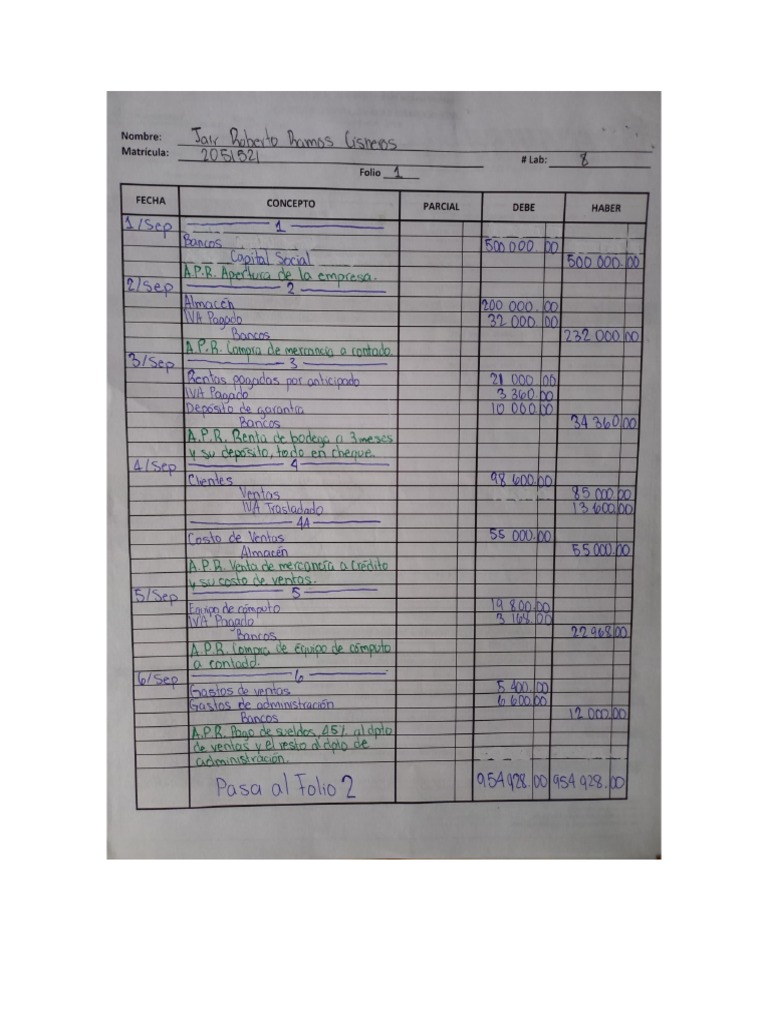 Nombre: Jair Roberto Ramos Cisneros
Matrícula: 2051521 # Lab: 8
Folio 1
FECHA CONCEPTO PARCIAL DEBE HABER
1/Sep 1
Bancos 500 000.00
Capital Social 500 000.00
A.P.R. Apertura de la empresa.
2/Sep 2
Almacén 200 000.00
IVA Pagado 32 000.00
Bancos 232 000.00
A.P.R. Compra de mercancía a contado.
3/Sep 3
Rentas pagadas por anticipado 21 000.00
IVA Pagado 3 360.00
Depósito de garantía 10 000.00
Bancos 34 360.00
A.P.R. Renta de bodega a 3 meses
y su depósito, todo en cheque.
4/Sep 4
Clientes 98 600.00
Ventas 85 000.00
IVA Trasladado 13 600.00
4A
Costo de Ventas 55 000.00
Almacén 55 000.00
A.P.R. Venta de mercancía a crédito
y su costo de ventas.
5/Sep 5
Equipo de cómputo 19 800.00
IVA Pagado 3 168.00
Bancos 22 968.00
A.P.R. Compra de équipo de cómputo
a contado.
6/Sep 6
Gastos de ventas 5 400.00
Gastos de administración 6 600.00
Bancos 12 000.00
A.P.R. Pago de sueldos, 45% al dpto
de ventas y el resto al dpto de
administración.
Pasa al Folio 2 954 928.00 954 928.00